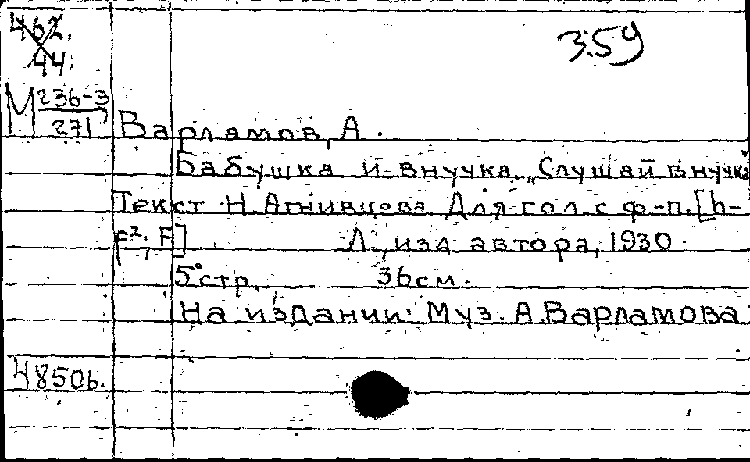 462.
44.
359
М 236-3
271
Варламов, А.
Бабушка и внучка. „Слушай внучка
Текст Н. Агнивцева. Для гол. с ф-п. [h-
f², F] Л., изд. автора, 1930.
5 стр. 36 см.
На издании: Муз. А. Варламова
48506.